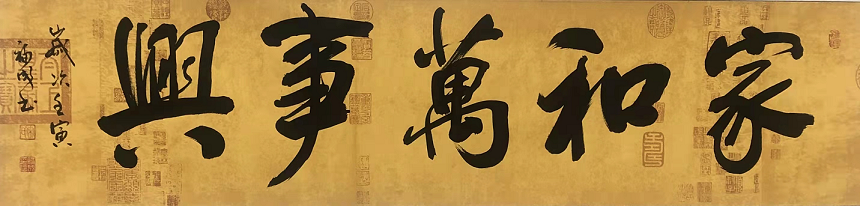 家和萬事興
歲次壬寅